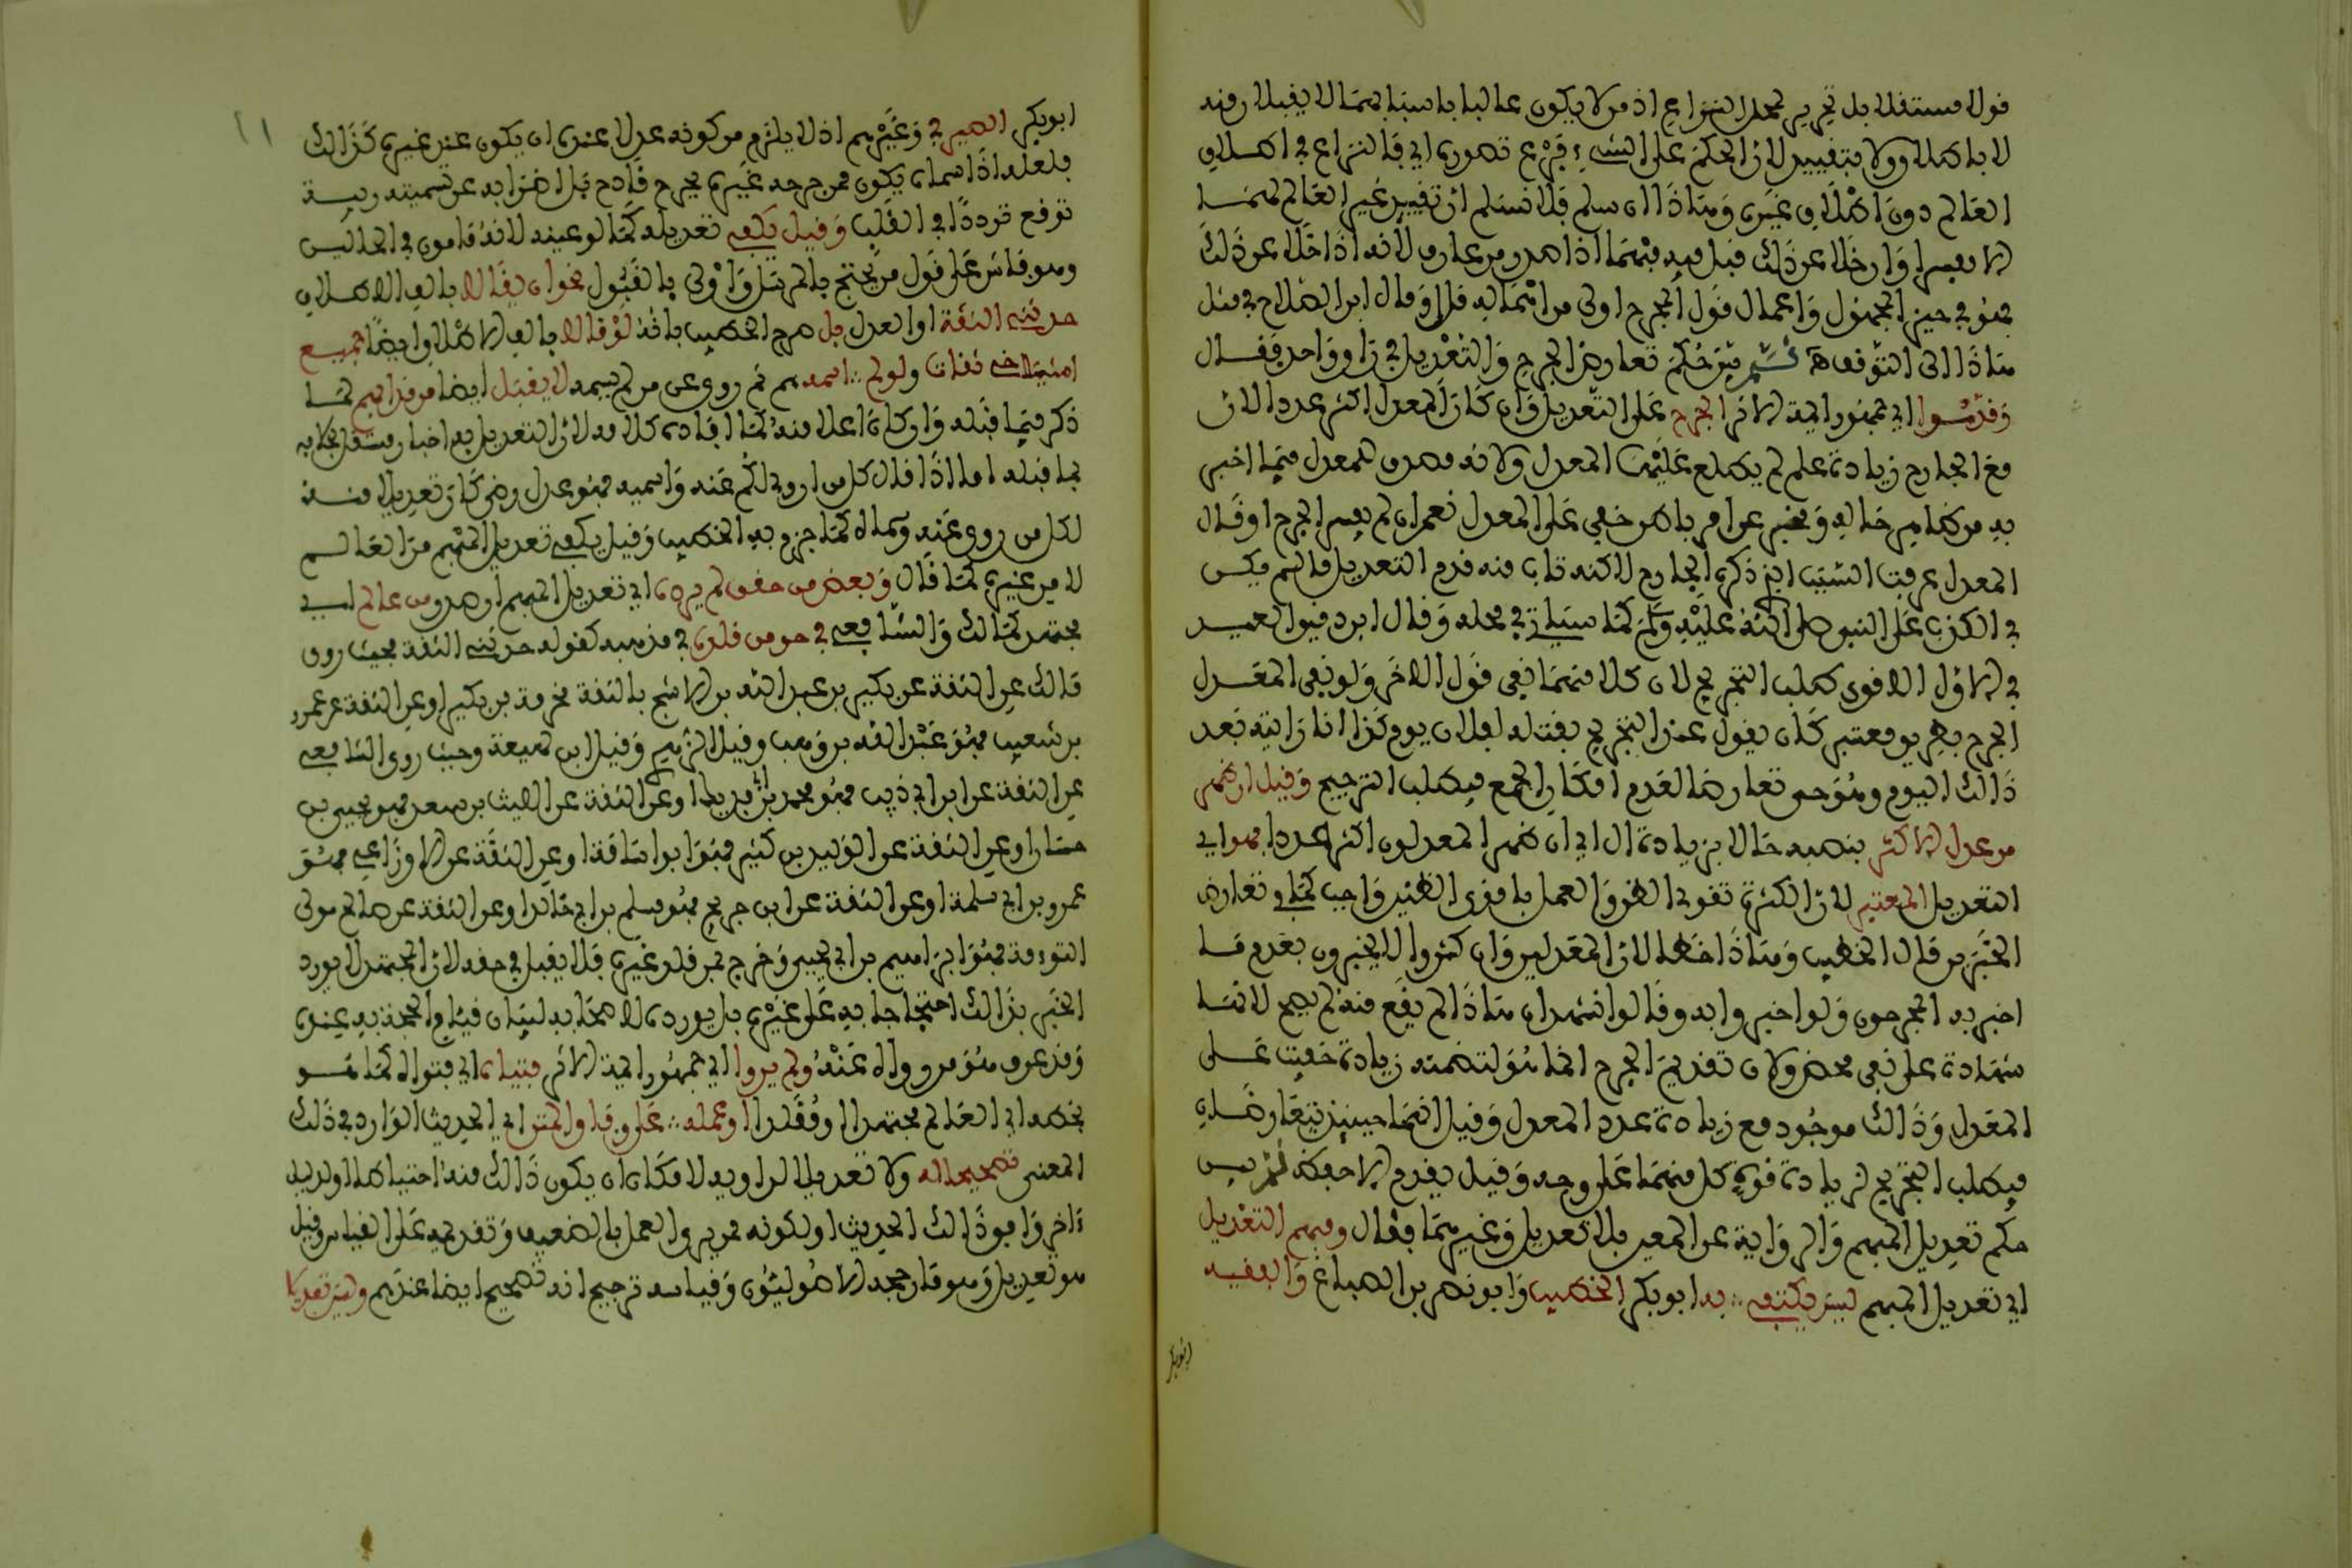 قولا مستقلا بل تحرير لمحل النزاع اذ من لا يكون عالما باسبابهما لا يقبلان منه
لا باطلاق ولا بتقييد لان الحكم على الشيء فرع تصوره اي فالنزاع في اطلاق
العالم دون اطلاق غيره وهاذا ان سلم فلا نسلم ان تقييد غير العالم لهما
لا يعسر وان خلا عن ذلك قبل فيه فيهما اذا صدر من عارف لانه اذا خلا عن ذلك
فهو في حيز المجهول واعمال قول الجرح اولى من اهماله قال وقال ابن الصلاح في مثل
هاذا الى التوقف ثم بين حكم تعارض الجرح والتعديل في راو واحد فقال
وقدموا اي جمهور ايمة الاثر الجرح على التعديل وان كان المعدل اكثر عددا لان
مع الجارح زيادة علم لم يطلع عليها المعدل ولانه مصدق للمعدل فيما اخبر
به من ظاهر حاله ويخبر عن امر باطن خفي على المعدل نعم ان لم يفسر الجرح او قال
المعدل عرفت السبب الذي ذكره الجارح لاكنه تاب منه قدم التعديل ما لم يكن
في الكذب على النبي صلى الله عليه وسلم كما سياتي في محله وقال ابن دقيق العيد
في الاول الاقوى طلب الترجيح لان كلا منهما نفي قول الاخر ولو نفى المعدل
الجرح بطريق معتبر كان يقول عند التجريح بقتله لفلان يوم كذا انا رايته بعد
ذالك اليوم وهو حي تعارضا لعدم امكان الجمع فيطلب الترجيح وقيل ان ظهر
من عدل الاكثر بنصبه حالا بزيادة ال اي ان ظهر المعدلون اكثر عددا فهو اي
التعديل المعتبر لان الكثرة تقوي الظن والعمل باقوى الظنين واجب كما في تعارض
الخبرين قال الخطيب وهاذا خطا لان المعدلين وان كثروا لا يخبرون بعدم ما
اخبر به المجرحون ولو اخبروا به وقالوا نشهد ان هاذا لم يقع منه لم يصح لانها
شهادة على نفي محض ولان تقديم الجرح انما هو لتضمنه زيادة خفيت على
المعدل وذالك موجود مع زيادة عدد المعدل وقيل انهما حينئذ يتعارضان
فيطلب الترجيح لزيادة قوة كل منهما على وجه وقيل يقدم الاحفظ ثم بين
حكم تعديل المبهم والرواية عن المعين بلا تعديل وغيرهما فقال ومبهم التعديل
اي تعديل المبهم ليس يكتفي به ابو بكر الخطيب وابو نصر بن الصباغ والفقيه
ابو بكر
ابو بكر الصيرفي وغيرهم اذ لا يلزم من كونه عدلا عنده ان يكون عند غيره كذالك
فلعله اذا سماه يكون ممن جرحه غيره بجرح قادح بل اضرابه عن تسميته ريبة
توقع ترددا في القلب وقيل يكفي تعديله كما لو عينه لانه مامون في الحالين
وهو ماش على قول من يحتج بالمرسل واولى بالقبول نحو ان يقالا بالف الاطلاق
حدثني الثقة او العدل بل صرح الخطيب بانه لو قالا بالف الاطلاق ايضا جميع
اشياخي ثقات ولو لم اسمهم ثم روى عن من لم يسمه لا يقبل ايضا من قد ابهم لما
ذكر فيما قبله وان كان اعلا منه كما افاده كلامه لان التعديل به اخبار مستقل بخلافه
بما قبله اما اذا قال كل من اروي لكم عنه واسميه فهو عدل رضي كان تعديلا منه
لكل من روى عنه وسماه كما جزم به الخطيب وقيل يكفي تعديل المبهم من العالم
لا من غيره كما قال وبعض من حقق لم يرده اي تعديل المبهم ان صدر من عالم اي
مجتهد كمالك والشافعي في حق من قلده في مذهبه كقوله حدثني الثقة فحيث روى
مالك عن الثقة عن بكير بن عبد الله بن الاشج بالثقة مخرمة بن بكير او عن الثقة عن عمرو
بن شعيب فهو عبد الله بن وهب وقيل الزهري وقيل ابن لهيعة وحيث روى الشافعي
عن الثقة عن ابن ابي ذيب فهو محمد بن ابي فديك او عن الثقة عن الليث بن سعد فهو يحيى بن
حسان او عن الثقة عن الوليد بن كثير فهو ابو اسامة او عن الثقة عن الاوزاعي فهو
عمرو بن ابي سلمة او عن الثقة عن ابن جريج فهو مسلم بن ابي خالد او عن الثقة عن صالح مولى
التوءمة فهو ابراهيم بن ابي يحيى وخرج بمن قلد غيره فلا يقبل في حقه لان المجتهد لا يورد
الخبر بذالك احتجاجا به على غيره بل يورده لاصحابه لبيان قيام الحجة به عنده
وقد عرف هو من رواه عنه ولم يروا اي جمهور ايمة الاثر فتياه اي فتواه كما هو
بخطه اي العالم مجتهدا او مقلدا او عمله على وفاق المتن اي الحديث الوارد في ذلك
المعنى تصحيحا له ولا تعديلا لراويه لامكان ان يكون ذالك منه احتياطا او لدليل
ءاخر وافق ذالك الحديث او لكونه ممن يرى العمل بالضعيف وتقديمه على القياس وقيل
هو تعديل وهو ما رجحه الاصوليون وقياسه ترجيح انه تصحيح ايضا عندهم وليس تعديلا